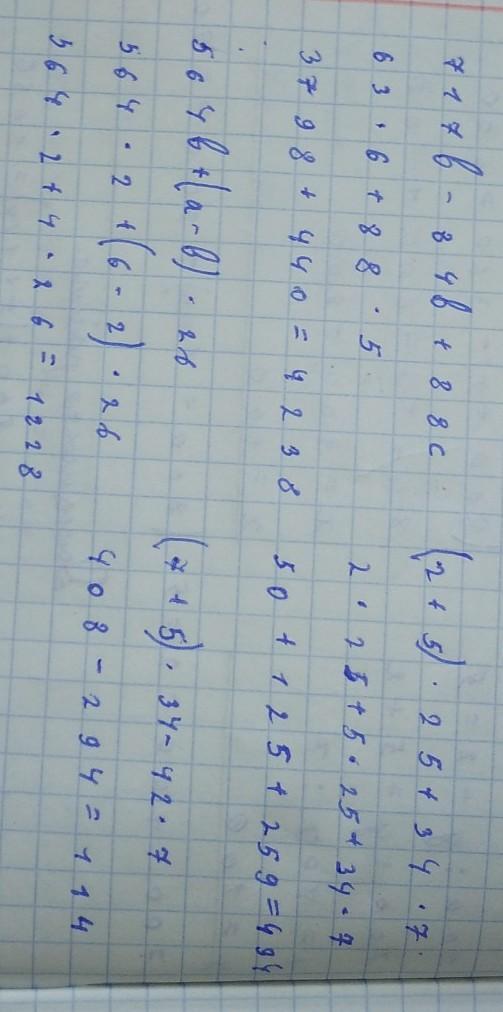 717b - 84b + 88c
63 · 6 + 88 · 5
3798 + 440 = 4238
564b + (a - b) · 26
564 · 2 + (6 - 2) · 26
564 · 2 + 4 · 26 = 1228
(2 + 5) · 25 + 34 · 7
2 · 25 + 5 · 25 + 34 · 7
50 + 125 + 259 = 494
(7 + 5) · 34 - 42 · 7
408 - 294 = 114